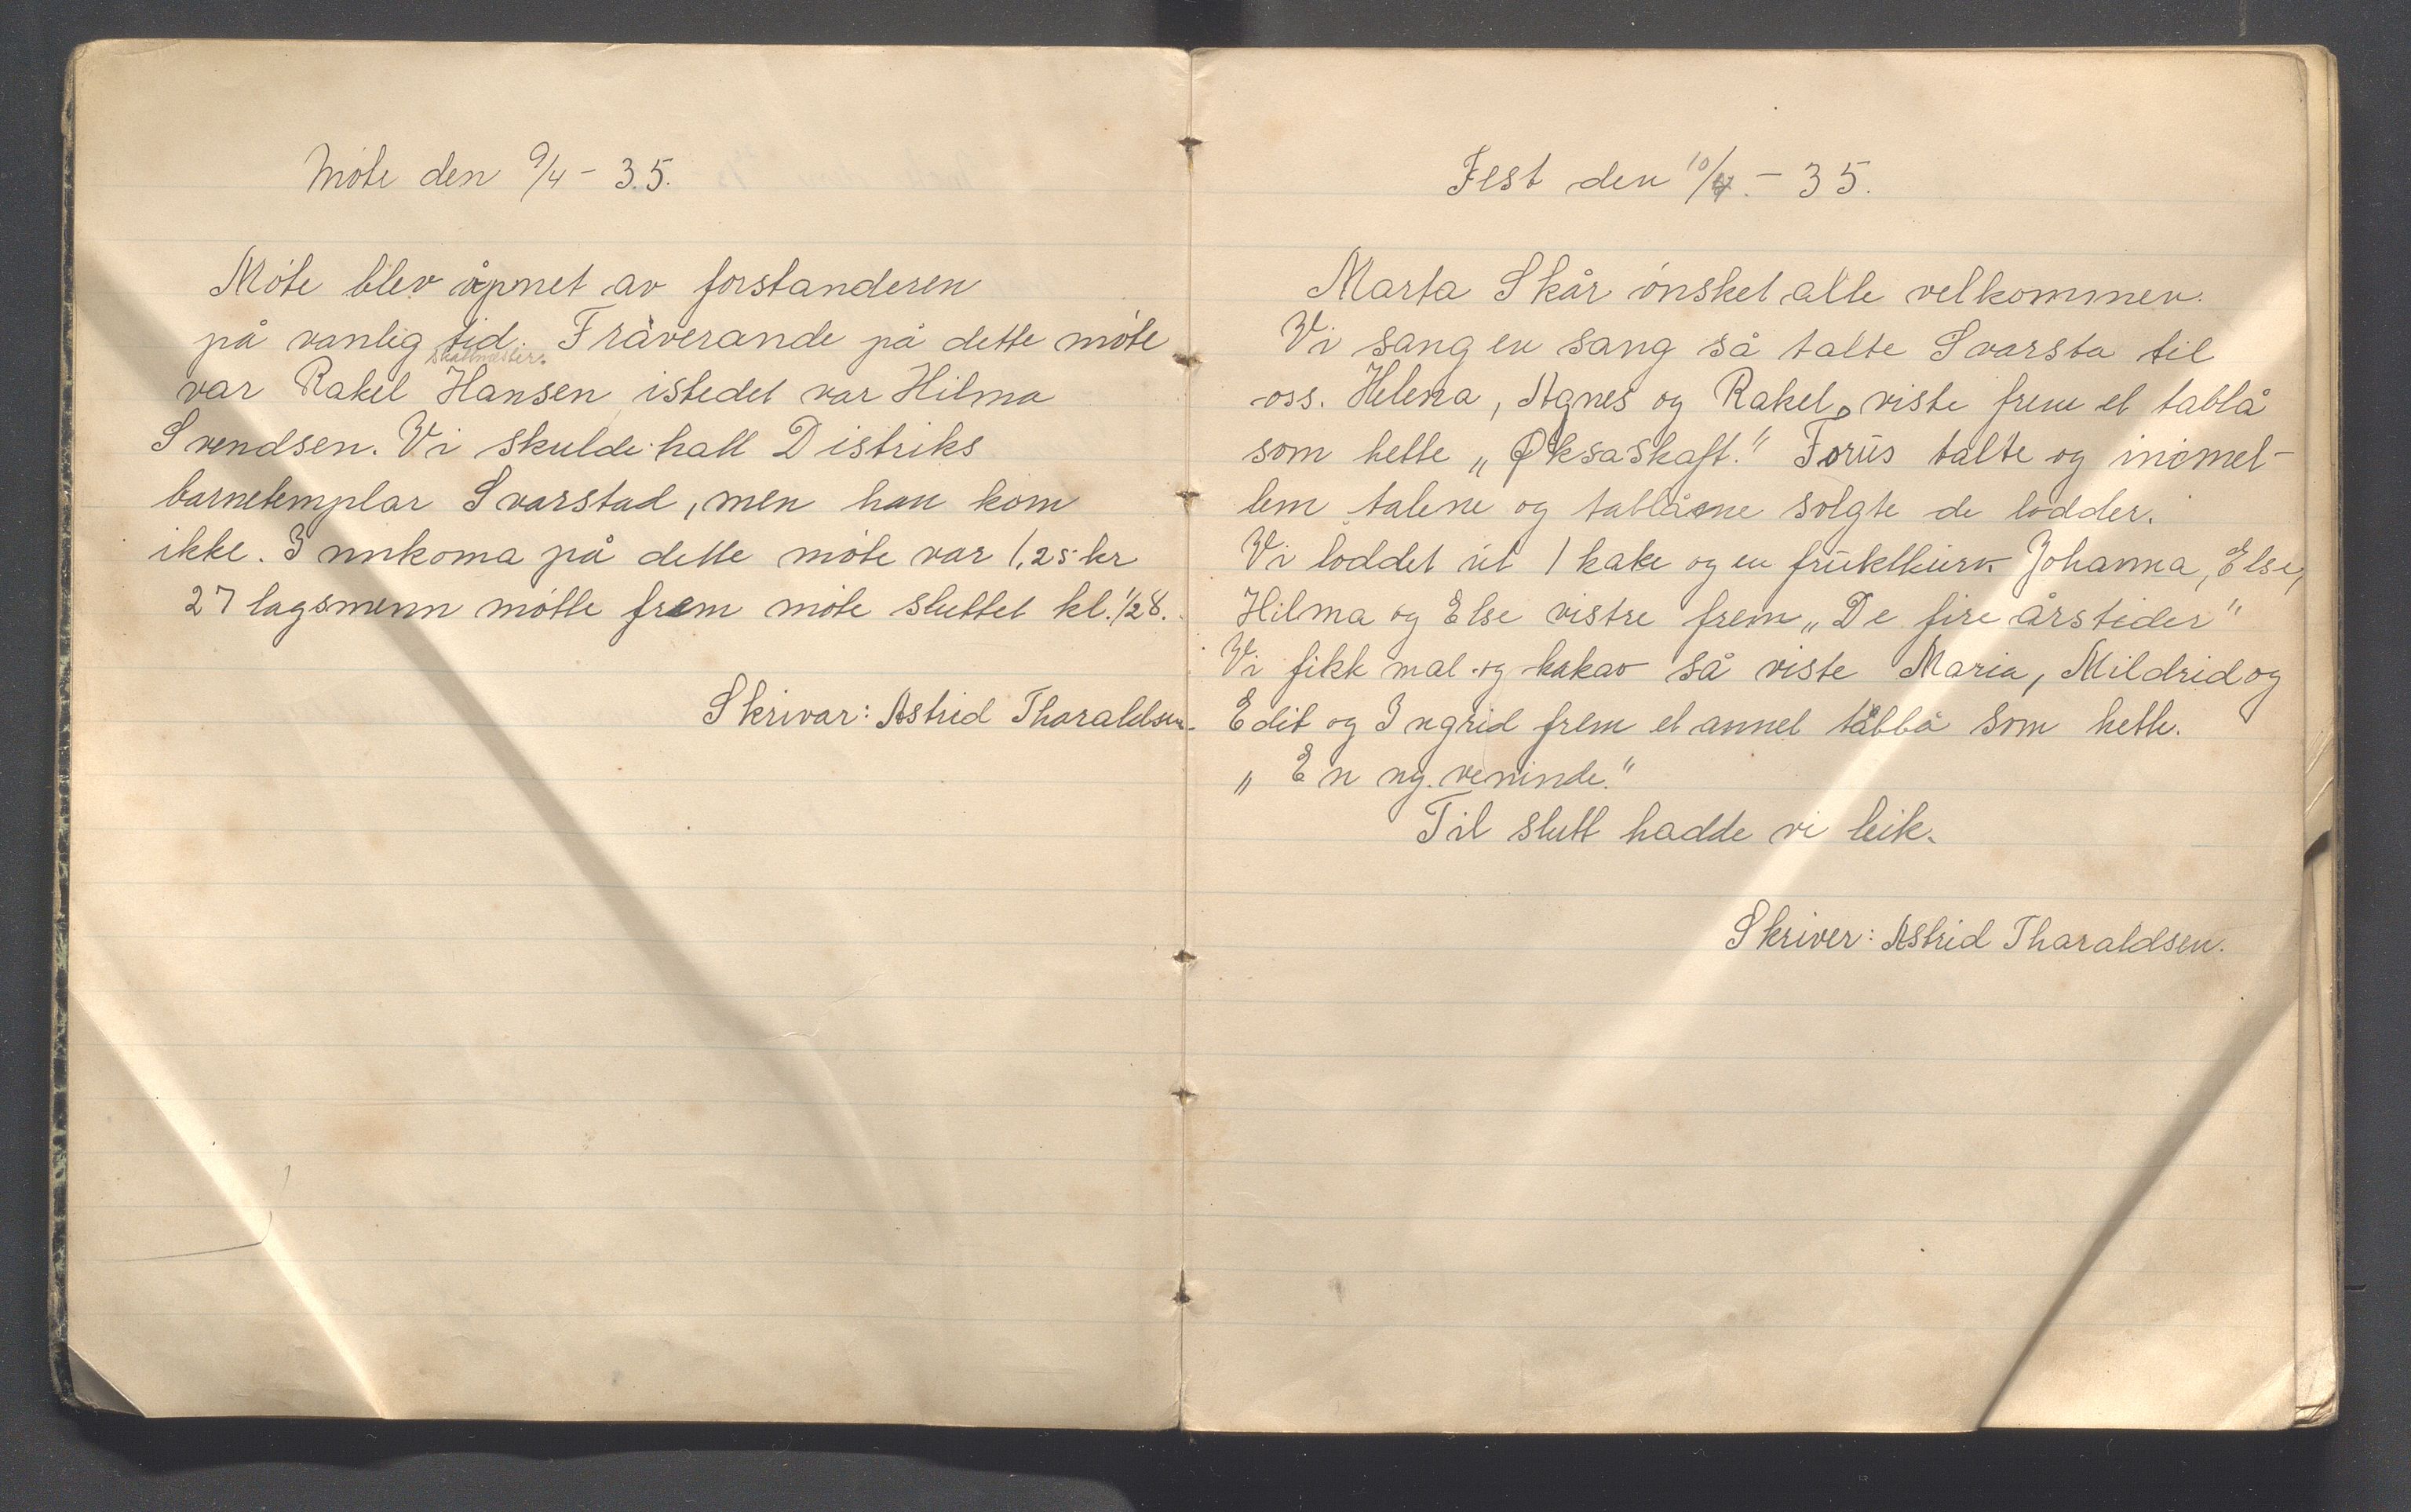 Møte den 9/4 - 35.
Møte blev åpnet av forstanderen
på vanlig tid. Fråverande på dette møte
skattmester.
var Rakel Hansen istedet var Hilma
Svendsen. Vi skulde hatt Distriks
barnetemplar Svarstad, men han kom
ikke. Innkoma på dette møte var 1,25 kr
27 lagsmenn møtte frem møte sluttet kl. 1/2 8.
Skrivar: Astrid Tharaldsen.
Fest den 10/4. - 35.
Marta Skår ønsket alle velkommen.
Vi sang en sang så talte Svarsta til
oss. Helena, Agnes og Rakel, viste frem et tablå
som hette „Øksaskaft." Forus talte og inimel-
lem talene og tablåene solgte de lodder.
Vi loddet ut 1 kake og en fruktkurv Johanna, Else,
Hilma og Else vistre frem „De fire årstider"
Vi fikk mat og kakao så viste Maria, Mildrid og
Edit og Ingrid frem et annet tablå som hette.
„En ny veninde."
Til slutt hadde vi leik.
Skriver: Astrid Tharaldsen.